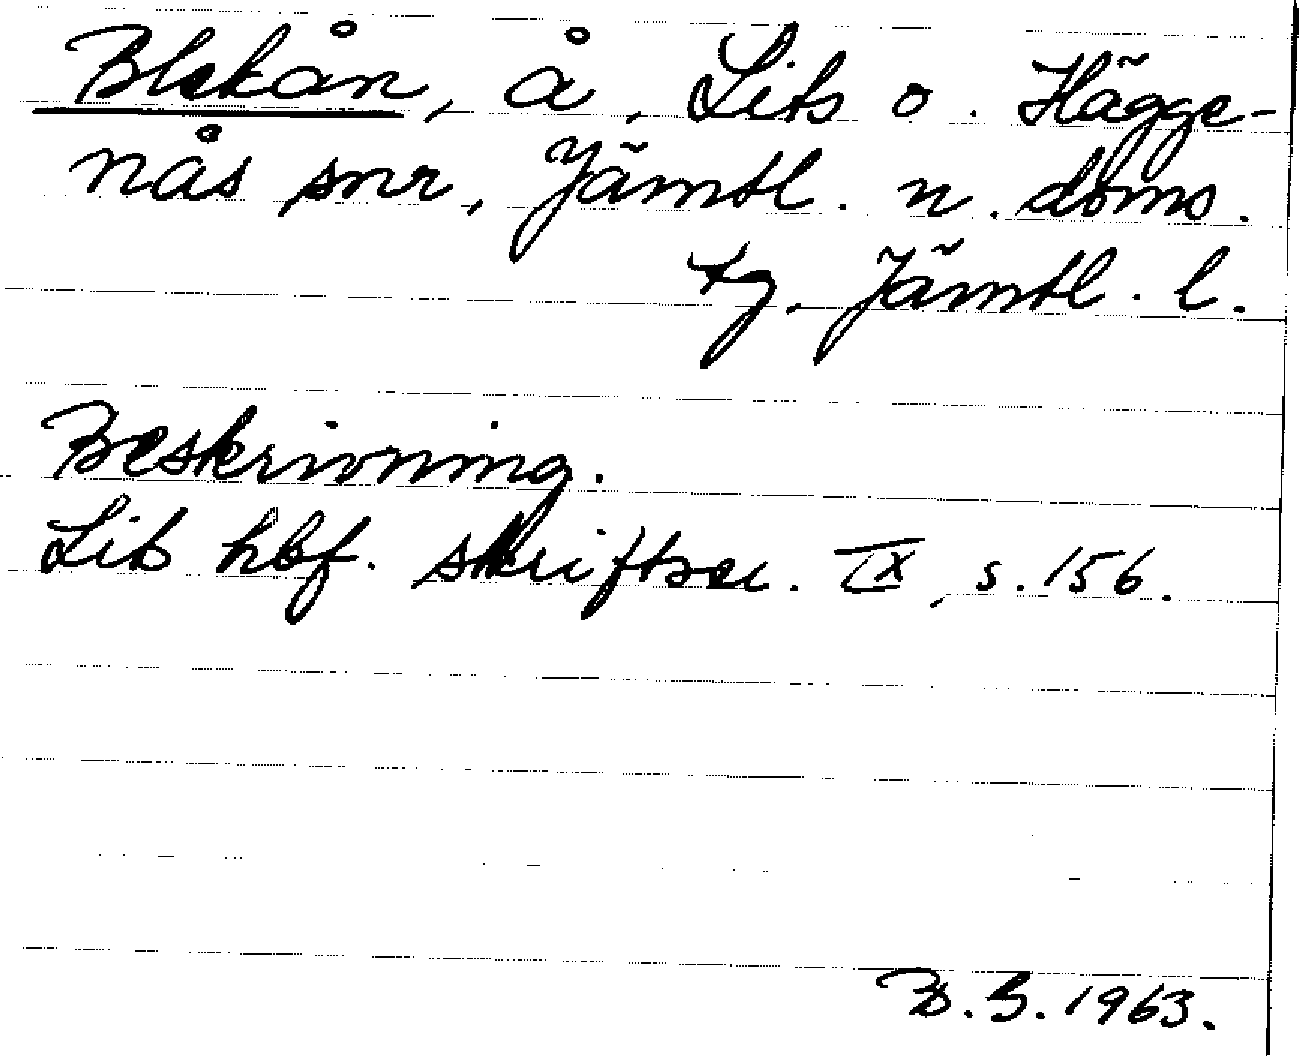 Blekån, å, Lits o. Hägge-
nås snr, Jämtl. n. doms.
tg. Jämtl. l.
Beskrivning.
Lit hbf. skriftser. IX, s. 156.
B. S. 1963.